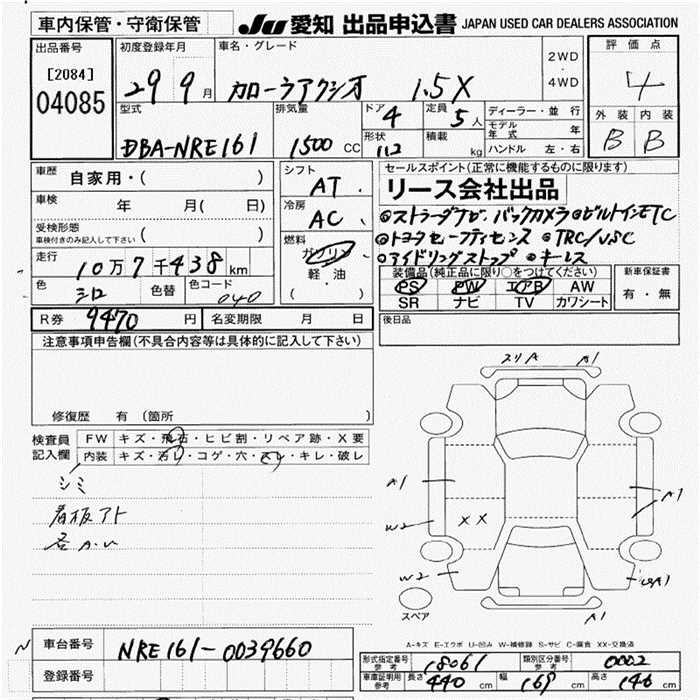 車内保管・守衛保管
JU 愛知 出品申込書 JAPAN USED CAR DEALERS ASSOCIATION
出品番号 初度登録年月 車名・グレード 2WD・4WD 評価点
[2084]
04085
29 9月 カローラアクシオ 1.5X 4
型式 排気量 ドア 4 定員 5人 ディーラー・並行
モデル年式 年
形状 積載 kg ハンドル 左・右
DBA-NRE161 1500 CC
外装 内装
B B
車歴 自家用・( )
車検 年 月( 日)
受検形態
車検付きのみ記入して下さい ( )
走行 10万7千438km
色 シロ 色替 色コード 040
シフト AT
冷房 AC
燃料 ガソリン
軽・油
( )
セールスポイント(正常に機能するものに限ります)
リース会社出品
◎ストラーダナビ バックカメラ ◎ビルトインETC
◎トヨタセーフティセンス ◎TRC/VSC
◎アイドリングストップ ◎キーレス
装備品(純正品に限り○をつけてください) 新車保証書
PS PW エアB AW 有・無
SR ナビ TV カワシート
R券 9470円 名変期限 月 日
後日品
注意事項申告欄(不具合内容等は具体的に記入して下さい)
修復歴 有 (箇所 )
検査員記入欄 FW キズ・飛石・ヒビ割・リペア跡・X要
内装 キズ・汚レ・コゲ・穴・スレ・キレ・破レ
シミ
看板アト
スリA A1
A1 A1
W2 XX
W2
スペア A1
A-キズ E-エクボ U-凹み W-補修跡 S-サビ C-腐食 XX-交換済
車台番号 NRE161-0039660
登録番号
形式指定番号 参考 18061 類別区分番号 参考 0002
車庫証明用 参考 長さ 440cm 幅 169cm 高さ 146cm